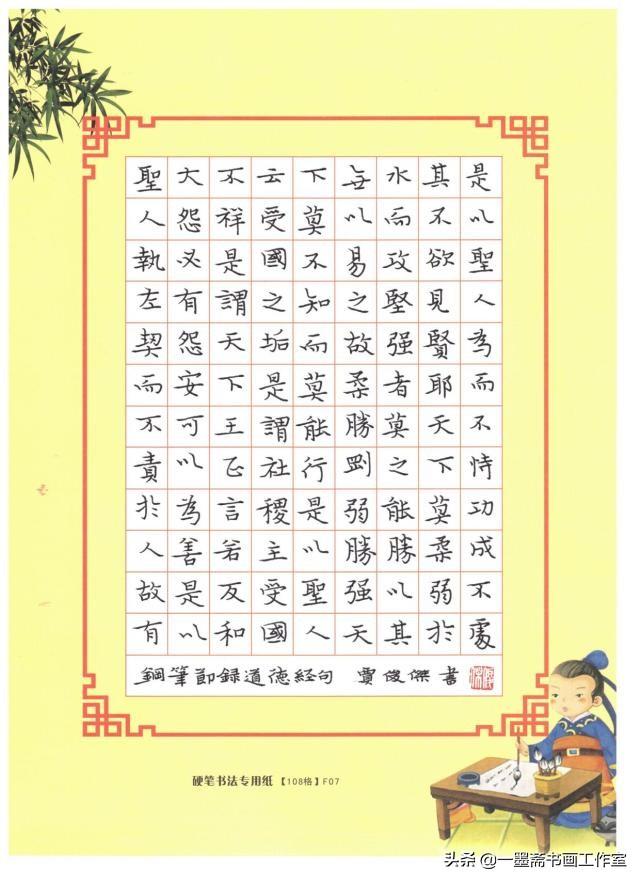 是以聖人為而不恃功成不處
其不欲見賢耶天下莫柔弱於
水而攻堅强者莫之能勝以其
無以易之故柔勝剛弱勝强天
下莫不知而莫能行是以聖人
云受國之垢是謂社稷主受國
不祥是謂天下王正言若反和
大怨必有怨安可以為善是以
聖人執左契而不責於人故有
鋼筆節録道德經句 賈俊傑書
硬笔书法专用纸【108格】F07
头条 @一墨斋书画工作室